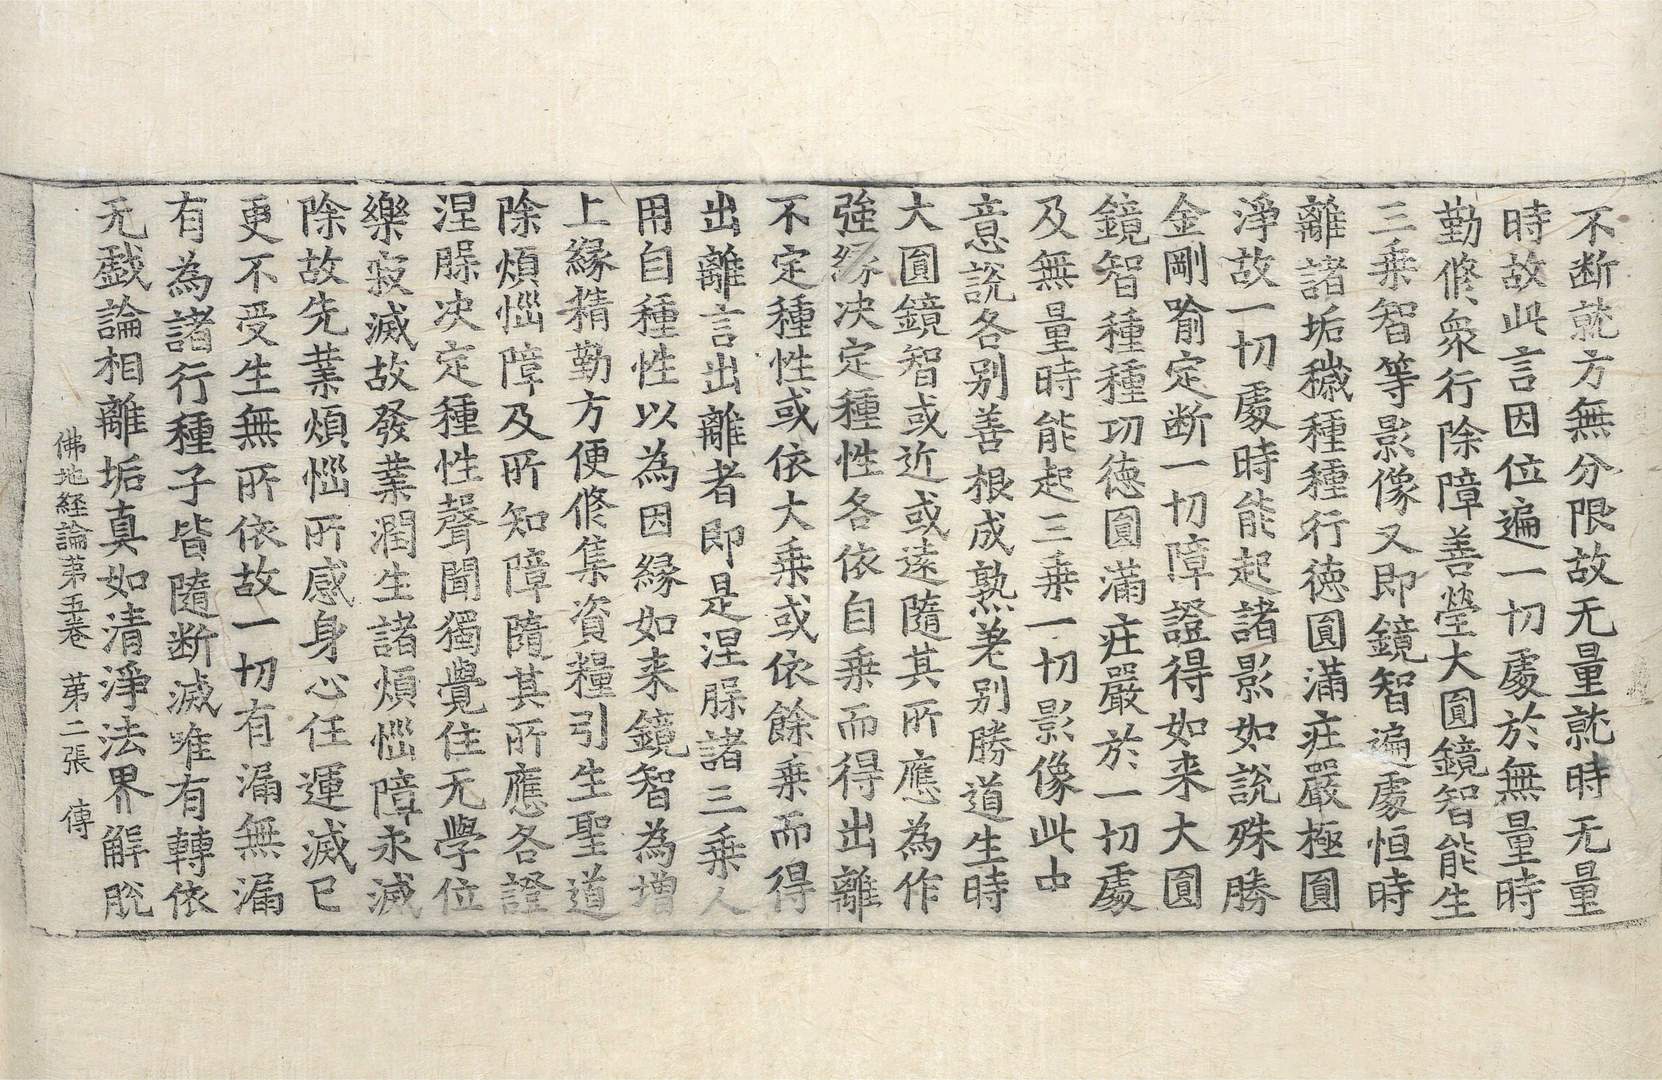 不断就方無分限故无量就時无量
時故此言因位遍一切處於無量時
勤脩衆行除障善瑩大圓鏡智能生
三乗智等影像又即鏡智遍處恒時
離諸垢穢種種行徳圓滿㽵嚴極圓
淨故一切處時能起諸影如說殊勝
金剛喻定断一切障證得如来大圓
鏡智種種功徳圓滿㽵嚴於一切處
及無量時能起三乗一切影像此中
意說各别善根成熟差别勝道生時
大圓鏡智或近或遠隨其所應為作
強緣决定種性各依自乗而得出離
不定種性或依大乗或依餘乗而得
出離言出離者即是涅槃諸三乗人
用自種性以為因緣如来鏡智為增
上緣精勤方便脩集資糧引生聖道
除煩惱障及所知障隨其所應各證
涅槃决定種性聲聞獨覺住无學位
樂寂滅故發業潤生諸煩惱障永滅
除故先業煩惱所感身心任運滅已
更不受生無所依故一切有漏無漏
有為諸行種子皆隨断滅唯有轉依
无戱論相離垢真如清淨法界解脫
佛地經論苐五卷　苐二張　傳